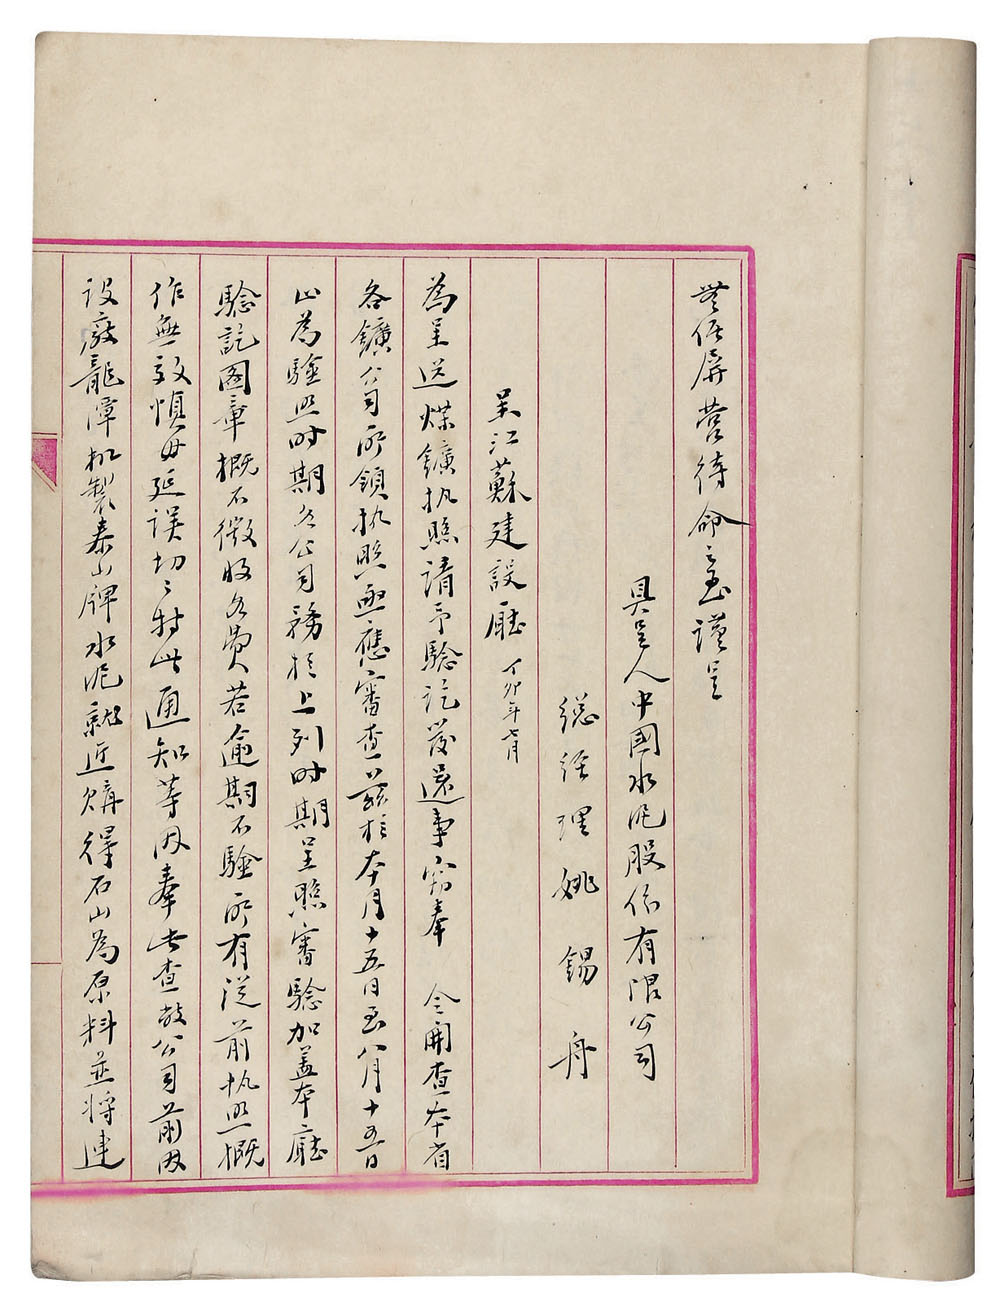 無任屏營待命之至謹呈
具呈人中國水泥股份有限公司
總經理姚錫舟
呈江蘇建設廳 丁卯年七月
為呈送煤鑛执照請予驗訖發還事窃奉 令開查本省
各鑛公司所領执照亟應審查茲於本月十五日至八月十五日
止為驗照时期各公司務於上列时期呈照審驗加盖本廳
驗訖图章概不徵收各费若逾期不驗所有從前执照概
作無效慎毋延误切切特此通知等因奉此查敝公司前因
设廠龍潭机製泰山牌水泥就近購得石山為原料並将連